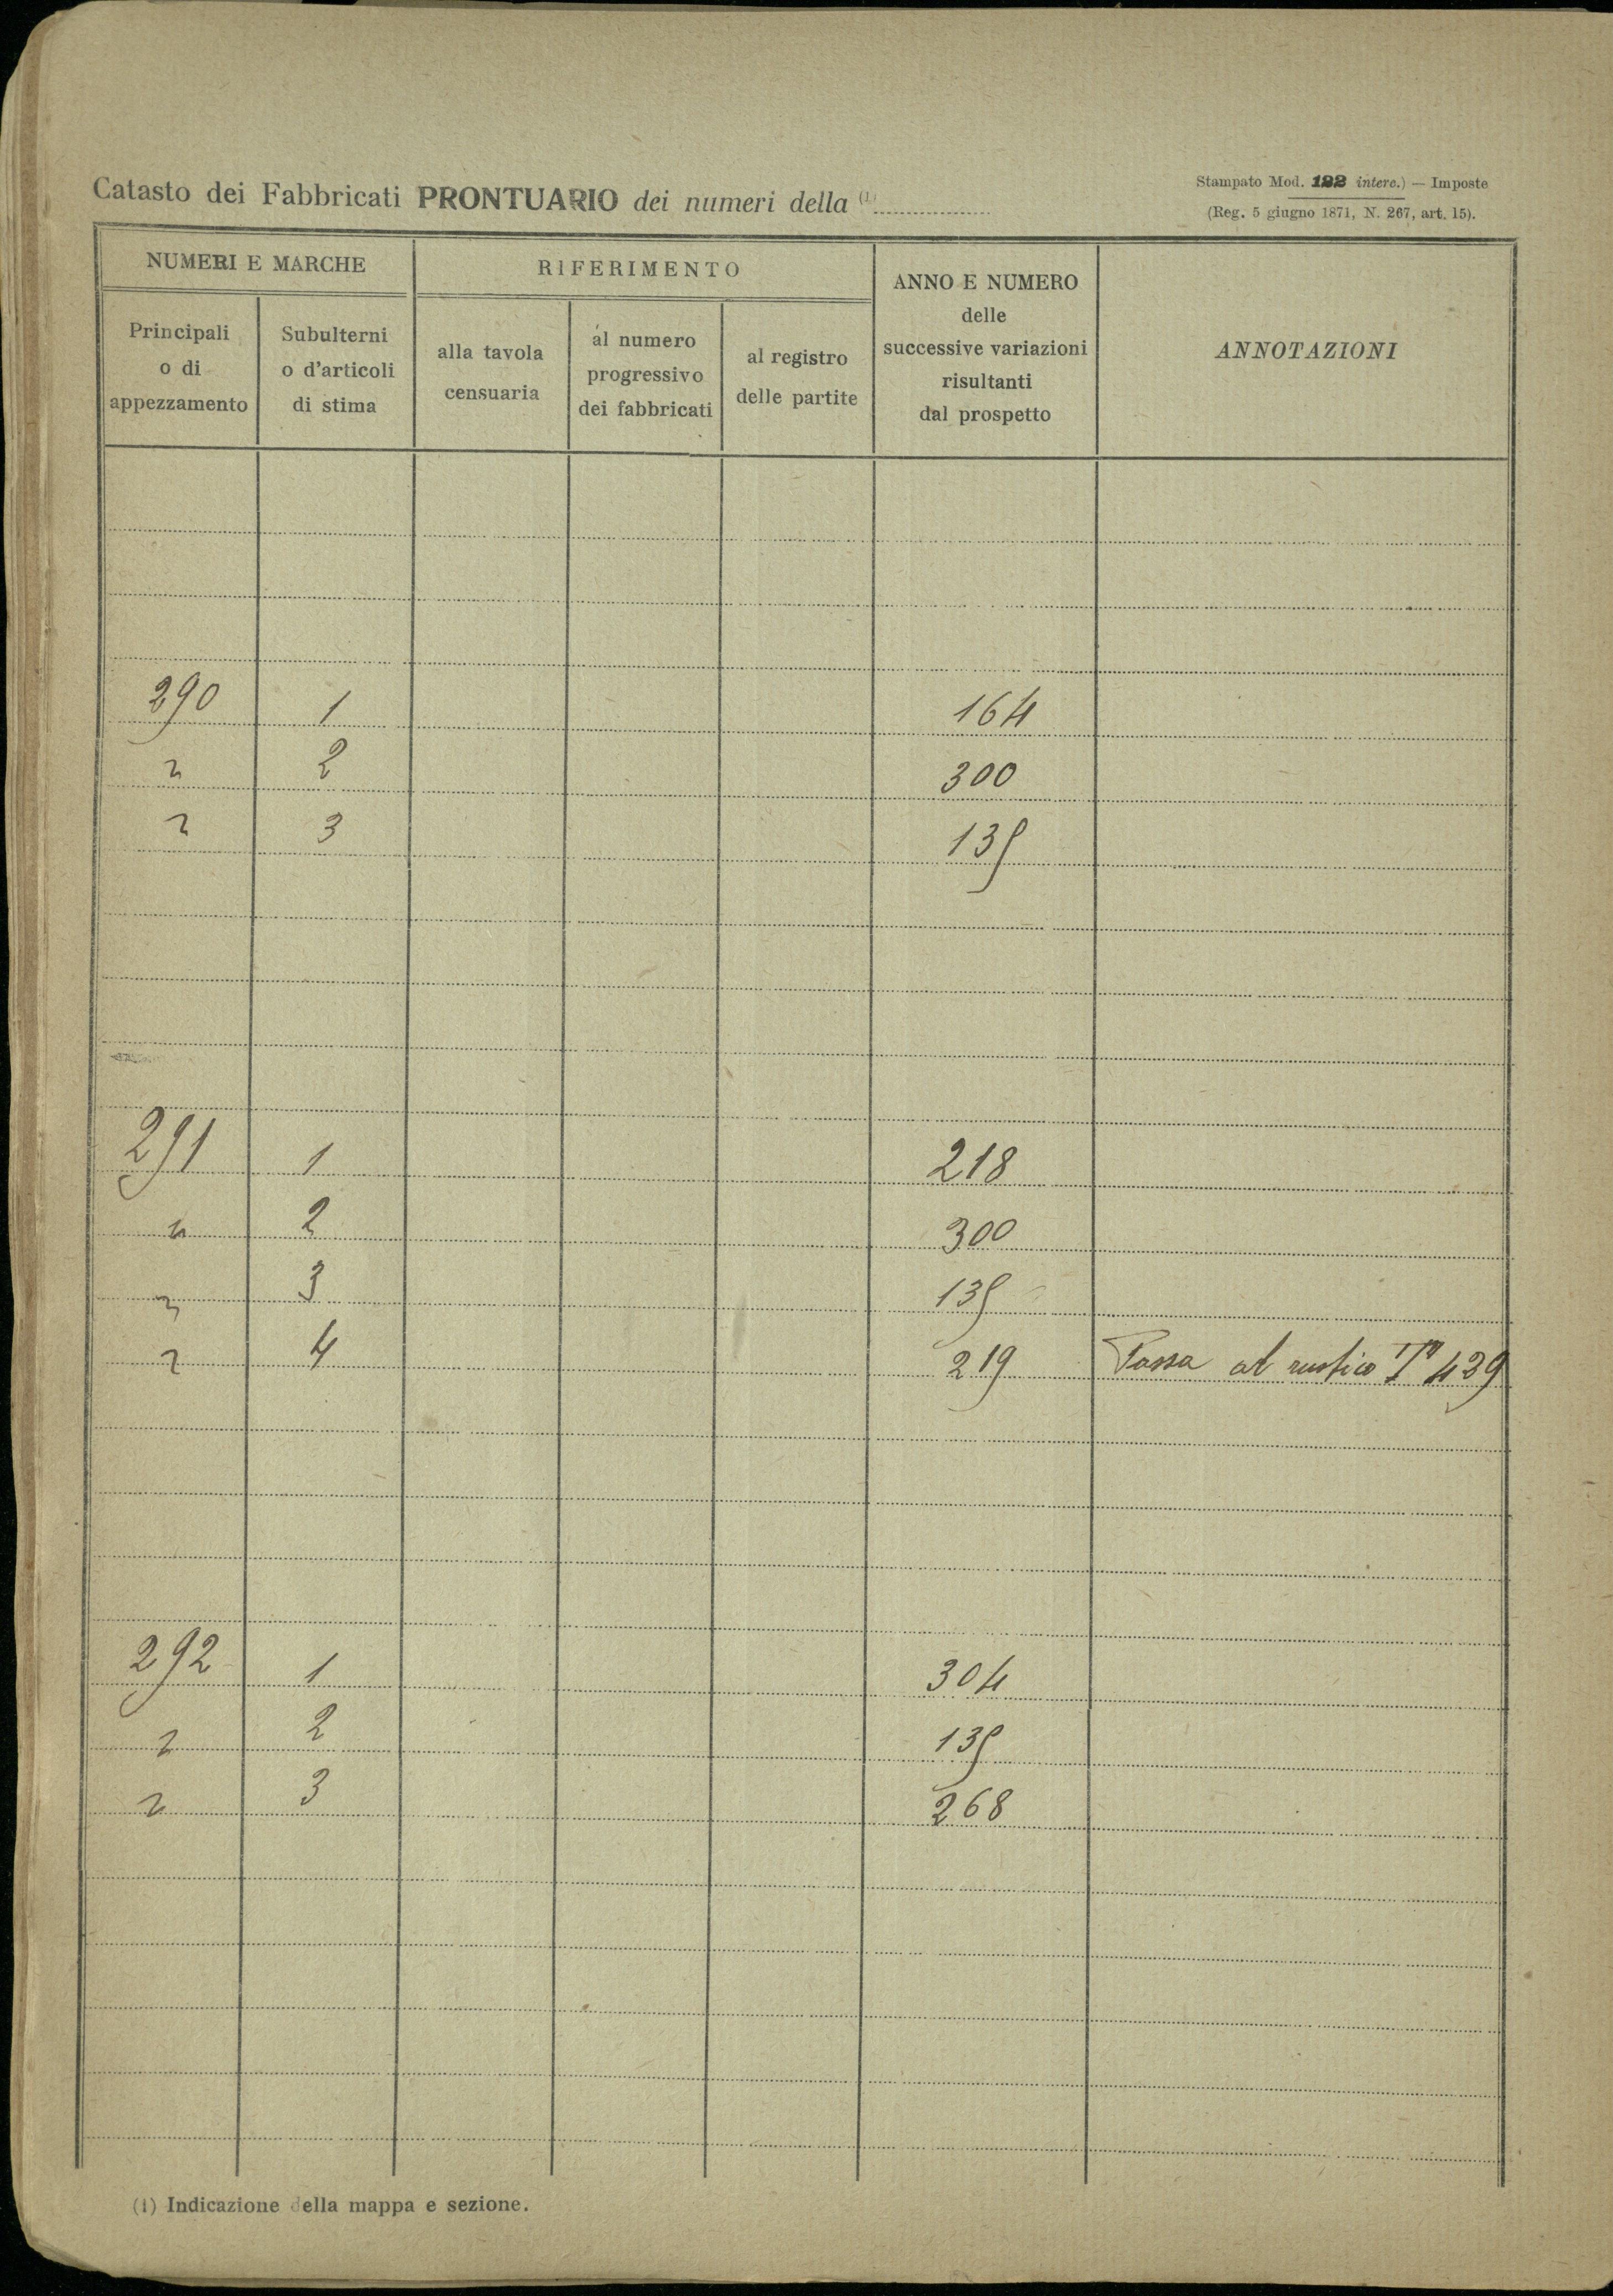 Catasto dei Fabbricati PRONTUARIO dei numeri della (1)
Stampato Mod. 122 interc.) — Imposte
(Reg. 5 giugno 1871, N. 267, art. 15).
NUMERI E MARCHE
Principali o di appezzamento
Subulterni o d'articoli di stima
RIFERIMENTO
alla tavola censuaria
al numero progressivo dei fabbricati
al registro delle partite
ANNO E NUMERO delle successive variazioni risultanti dal prospetto
ANNOTAZIONI
290 1 164
" 2 300
" 3 135
291 1 218
" 2 300
" 3 135
" 4 219 Passa al rustico 439
292 1 304
" 2 135
" 3 268
(1) Indicazione della mappa e sezione.